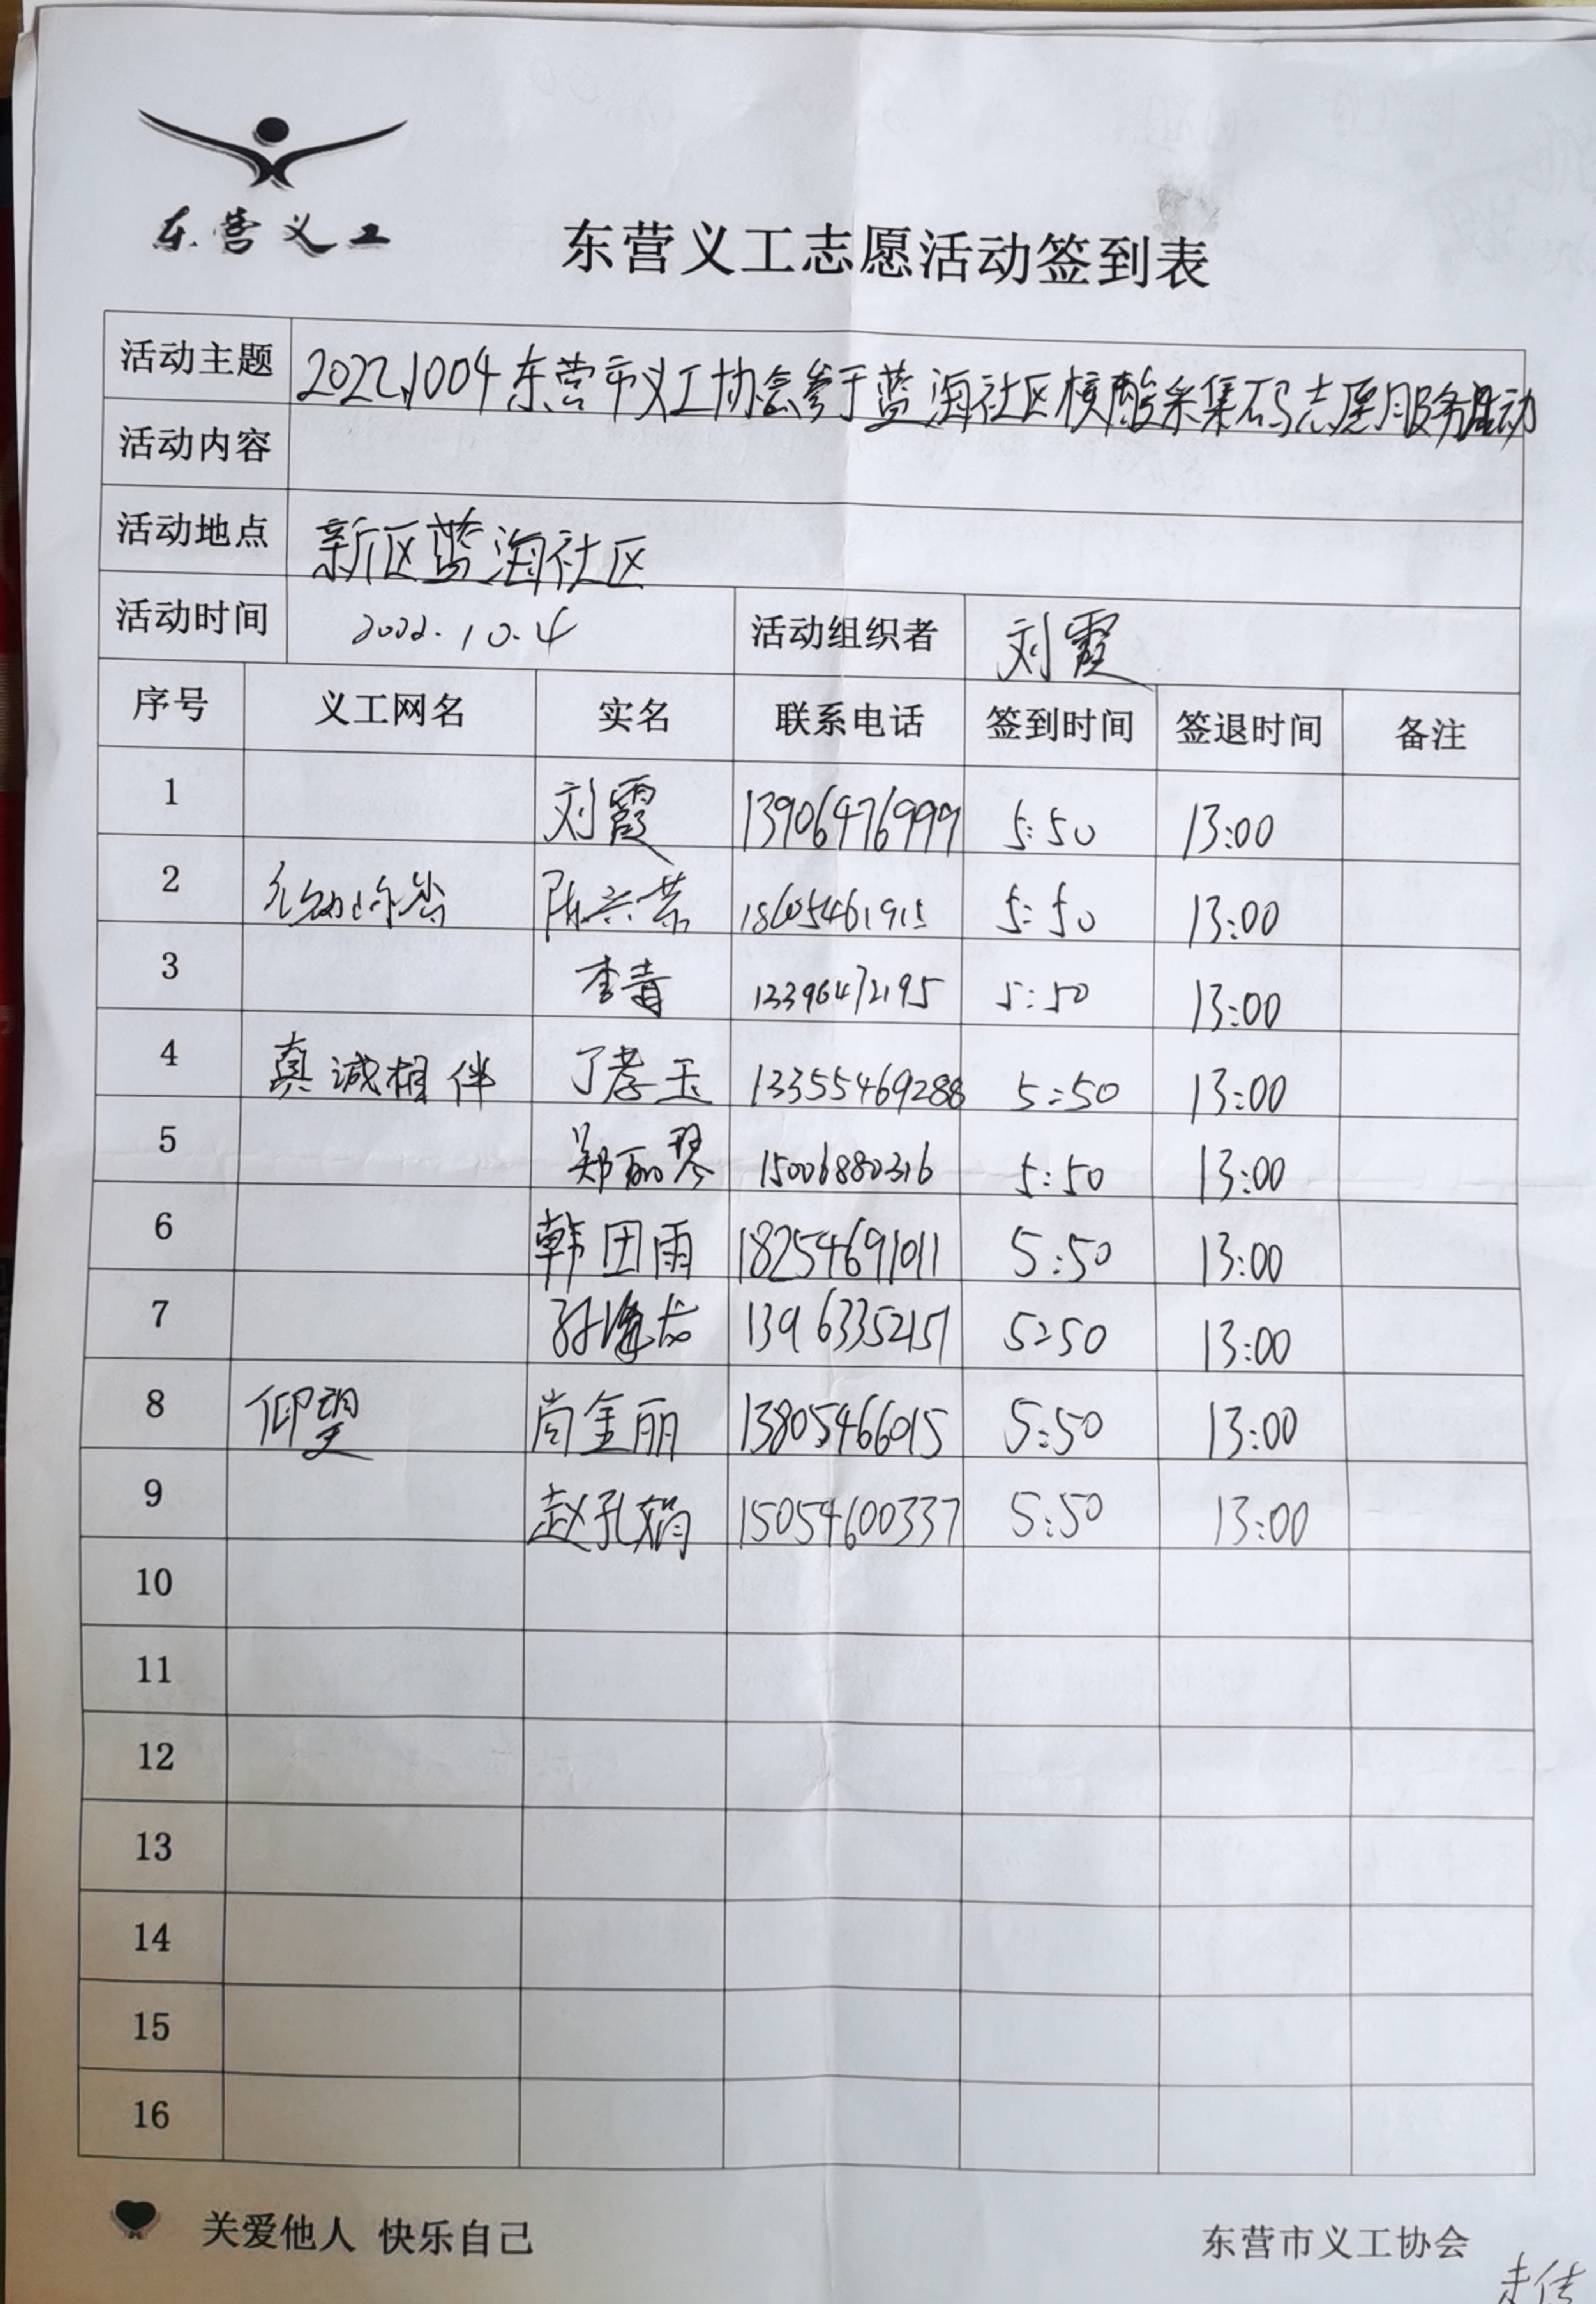 东营义工
东营义工志愿活动签到表
活动主题 20221004东营市义工协会参于蓝海社区核酸采集码志愿服务活动
活动内容
活动地点 新区蓝海社区
活动时间 2022.10.4 活动组织者 刘霞
序号 义工网名 实名 联系电话 签到时间 签退时间 备注
1 刘霞 13906476999 5:50 13:00
2 陈兴荣 18605461915 5:50 13:00
3 李青 13396472195 5:50 13:00
4 真诚相伴 丁孝玉 13355469288 5:50 13:00
5 郑丽琴 15006880316 5:50 13:00
6 韩团雨 18254691011 5:50 13:00
7 13963352151 5:50 13:00
8 仰望 尚金丽 13805466015 5:50 13:00
9 赵孔娟 15054600337 5:50 13:00
10
11
12
13
14
15
16
关爱他人 快乐自己 东营市义工协会